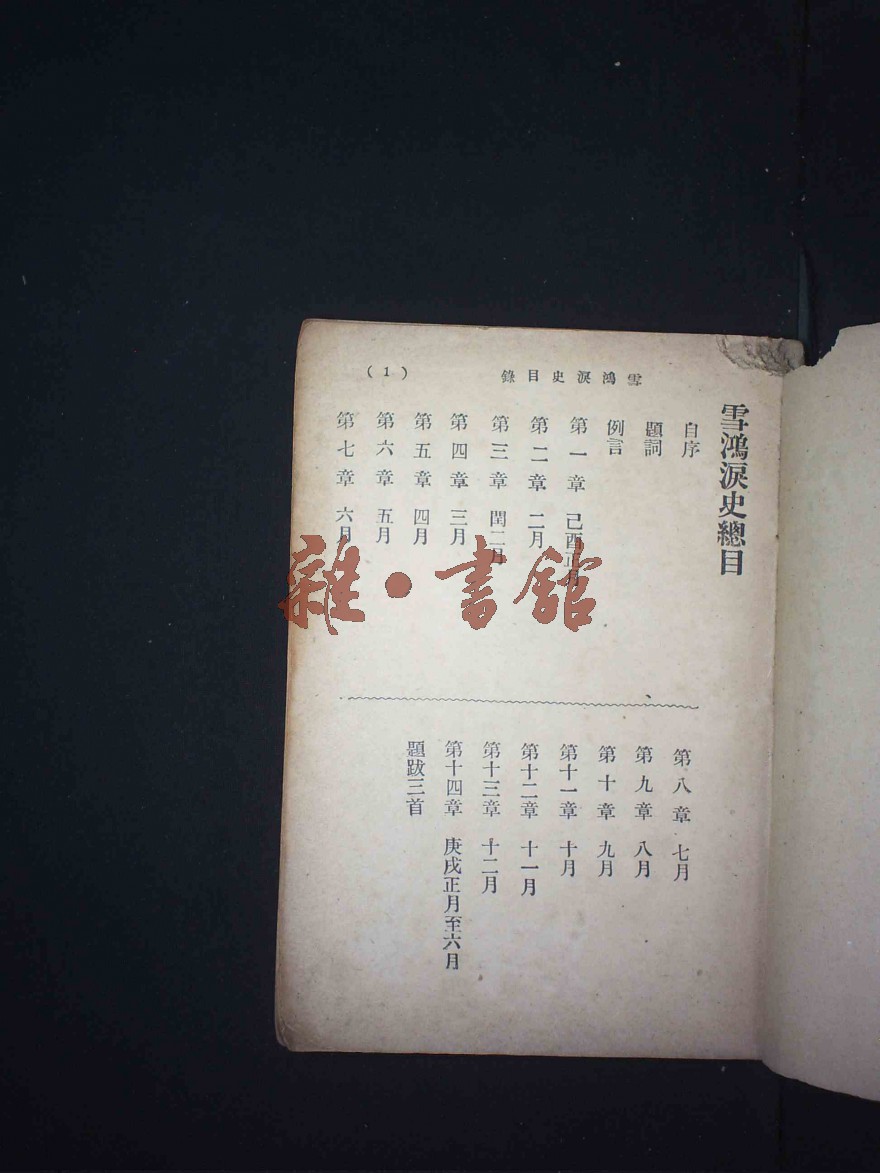 雪鴻淚史目錄
(1)
雪鴻淚史總目
自序
題詞
例言
第一章 己酉正月
第二章 二月
第三章 閏二月
第四章 三月
第五章 四月
第六章 五月
第七章 六月
第八章 七月
第九章 八月
第十章 九月
第十一章 十月
第十二章 十一月
第十三章 十二月
第十四章 庚戌正月至六月
題跋三首
雜·書館